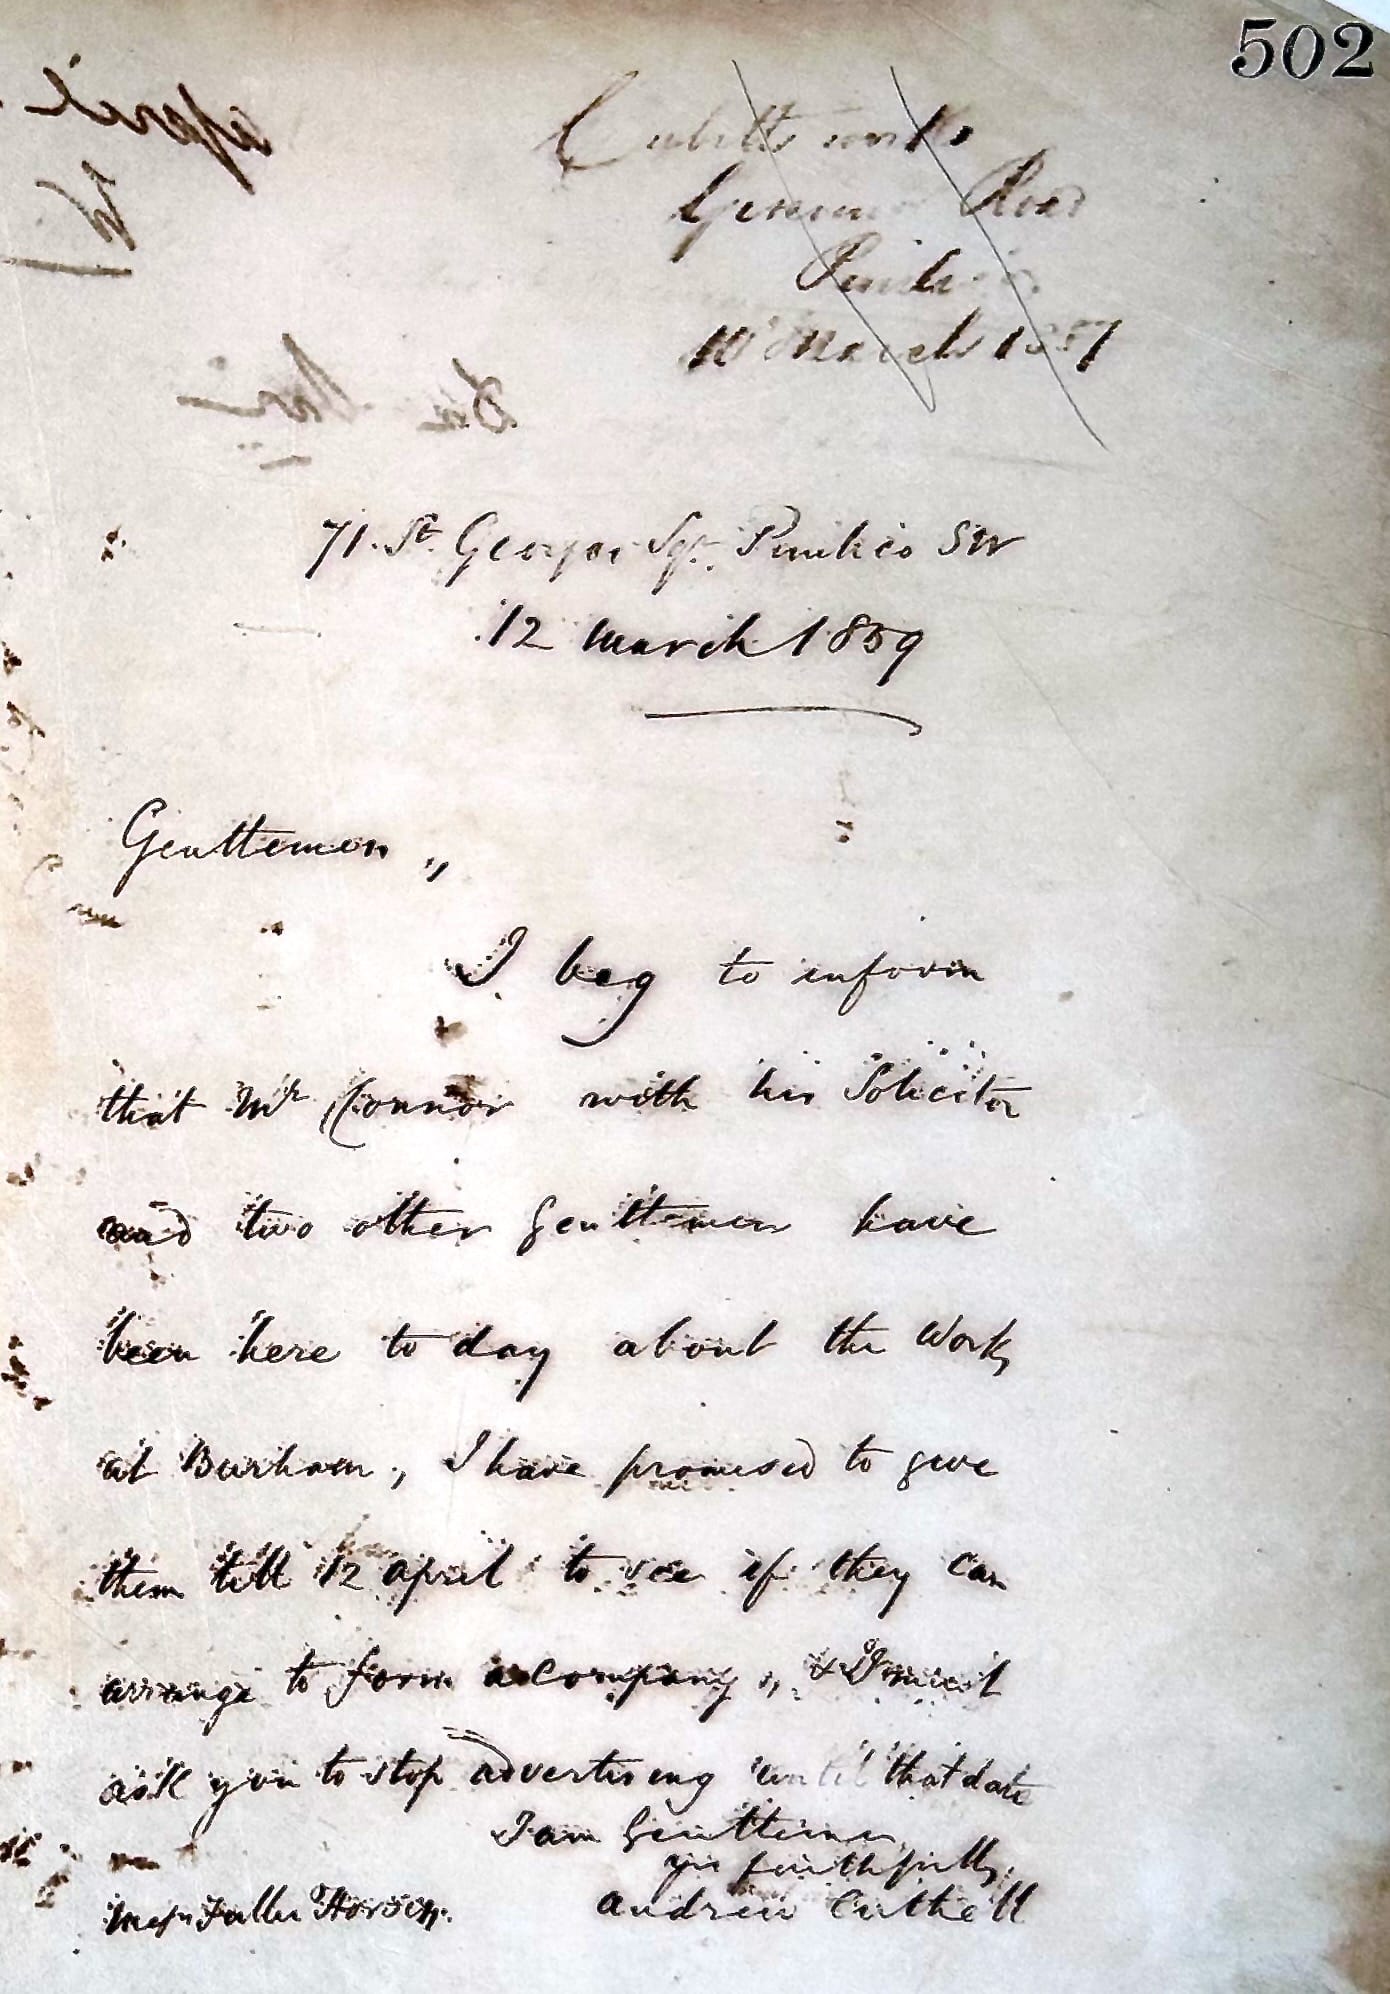 502
Cubitts works
Grosvenor Road
Pimlico
10 March 1857
71 St. Georges Sqr. Pimlico SW
12 March 1859
Gentlemen,,
I beg to inform
that Mr Connor with his Solicitor
and two other Gentlemen have
been here to day about the Work
at Burham, I have promised to give
them till 12 april to see if they can
arrange to form a company,, & I must
ask you to stop advertising until that date
I am Gentlemen
yrs faithfully
Messrs Fuller Horsey.
andrew Cuthell